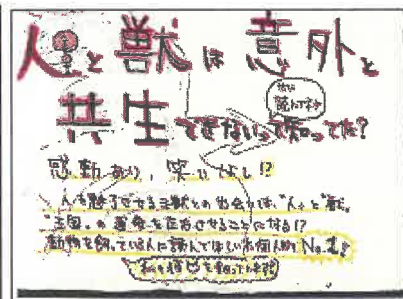 人と獣は意外と
共生できないって知ってた?
感動あり、笑いなし!?
人を魅了させる王獣との出会いは、"人"と"獣"、
"王国"の運命を左右させることになる!?
動物を飼っている人に読んでほしい本個人的No.1!